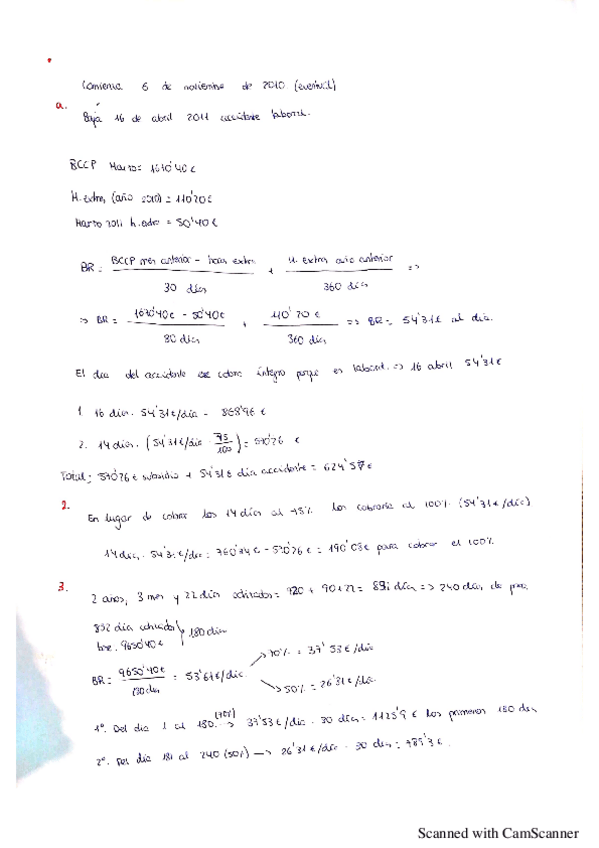 Comienza 6 de noviembre de 2010 (eventual)
a.
Baja 16 de abril 2011 accidente laboral.
BCCP Marzo = 1670'40€
H. extra, (año 2010) = 110'70€
Marzo 2011 h. extra = 50'40€
BR = BCCP mes anterior - horas extra / 30 días + H. extras año anterior / 360 días =>
=> BR = 1670'40€ - 50'40€ / 30 días + 110'70 € / 360 días => BR = 54'31€ al día.
El día del accidente se cobra íntegro porque es laboral. => 16 abril 54'31€
1. 16 días · 54'31€/día = 868'96 €
2. 14 días · (54'31€/día · 75/100) = 570'26 €
Total: 570'26€ subsidio + 54'31€ día accidente = 624'57€
2.
En lugar de cobrar los 14 días al 75% los cobraría al 100% (54'31€/día)
14 días · 54'31€/día = 760'34€ - 570'26€ = 190'08€ para cobrar el 100%
3.
2 años, 3 mes y 22 días cotizados = 720 + 90+22 = 832 días => 240 días de
832 día cotizados
base. 9650'40€
180 días
BR = 9650'40€ / 180 días = 53'61€/día
70% = 37'53€/día
50% = 26'31€/día
1º. Del dia 1 al 180. (70%) -> 37'53€/día · 30 días = 1125'9 € los primeros 180 días
2º. Del día 181 al 240 (50%) -> 26'31€/día · 30 días = 789'3€.
Scanned with CamScanner